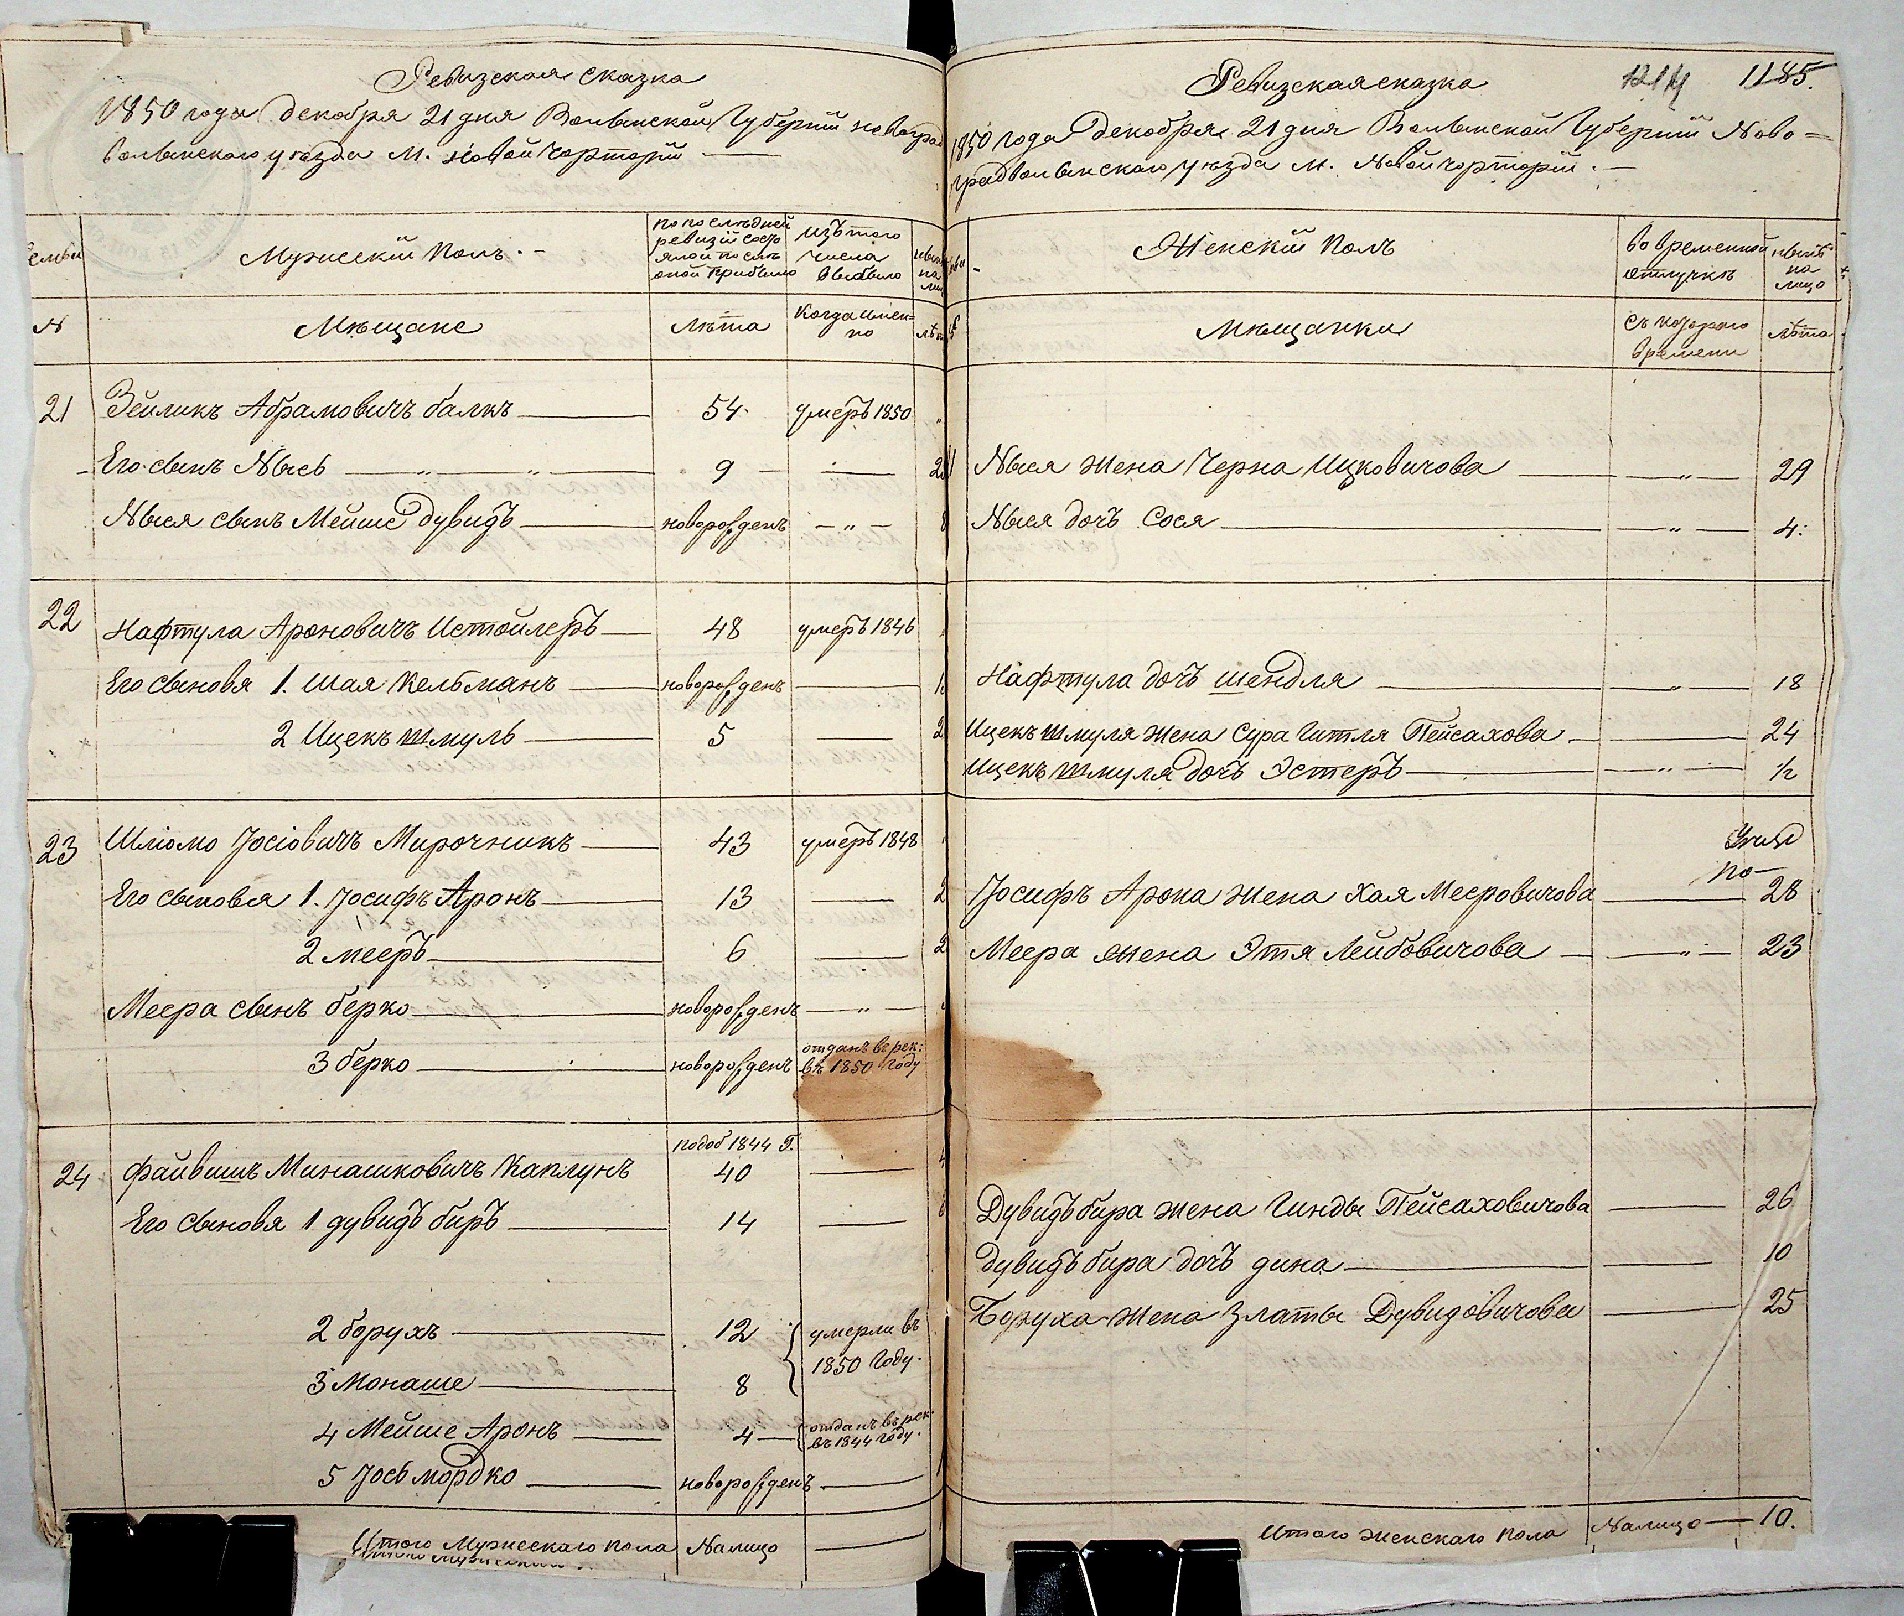 Ревизская сказка
1850 года декабря 21 дня Волынской Губерніи Новоград
волынского уезда М. Новой Чорторіи —
семьи
Мужескій Полъ. —
по последней
ревизіи состо
яло и после
оной прибыло
Изъ того
числа
выбыло
ныне
на
лицо
№
Мѣщане
Лѣта
Когда имен=
но
лѣта
21 Зейликъ Абрамовичъ балкъ — 54. умеръ 1850 „
Его сынъ Нысь — „ — „ — 9 — —
Ныся сынъ Мейше дувидъ — новорожденъ — „ —
22 Нафтула Ароновичъ Истойлеръ — 48 умеръ 1846
Его сыновя 1. Шая Кельманъ — новорожденъ —
2 Ицекъ шмуль — 5 —
23 Шліомо Іосіовичъ Мирочникъ — 43 умеръ 1848
Его сыновья 1. Іосифъ Аронъ — 13 —
2 мееръ — 6 —
Меера сынъ берко — новорожденъ — „ —
3 берко — новорожденъ отданъ в рек:
въ 1850 году
подоб 1844 г.
24 файвишъ Минашковичъ Каплунъ 40 —
Его сыновя 1 дувидъ биръ — 14 —
2 борухъ — 12 умерли въ
1850 году.
3 Монаше — 8
4 Мейше Аронъ — 4 — отданъ в рек.
въ 1844 году.
5 Іось мордко — новорожденъ —
Итого Мужескаго пола Налицо —
Ревизская сказка 1214 1185.
1850 года декабря 21 дня Волынской Губерніи Ново=
градволынского уезда М. Новой Чорторіи. —
Женскій Полъ
во временной
отлучкѣ
ныне
на
лицо
Мѣщанки
съ которого
времени
лѣта
Ныся жена Черна Ицковичова — „ — 29
Ныся дочъ Сося — „ — 4:
Нафтула дочъ шендля — „ — 18
Ицекъ шмуля жена Сура Гитля Пейсахова — 24
Ицекъ шмуля дочъ Эстеръ — „ — ½
Іосифъ Арона жена Хая Мееровичова — 28
Меера жена Этя Лейбовичова — „ — 23
Дувидъ бира жена Гинды Пейсаховичова — 26
дувидъ бира дочъ дина — 10
Боруха жена Златы Дувидовичова — 25
Итого женскаго пола Налицо — 10.